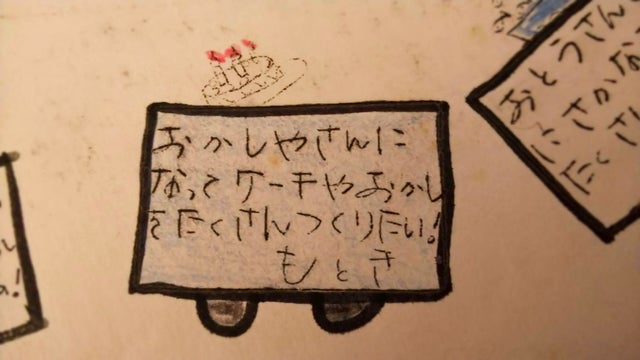 おかしやさんに
なってケーキやおかし
をたくさんつくりたい!
もとき
おとうさん
さかな
たくさ